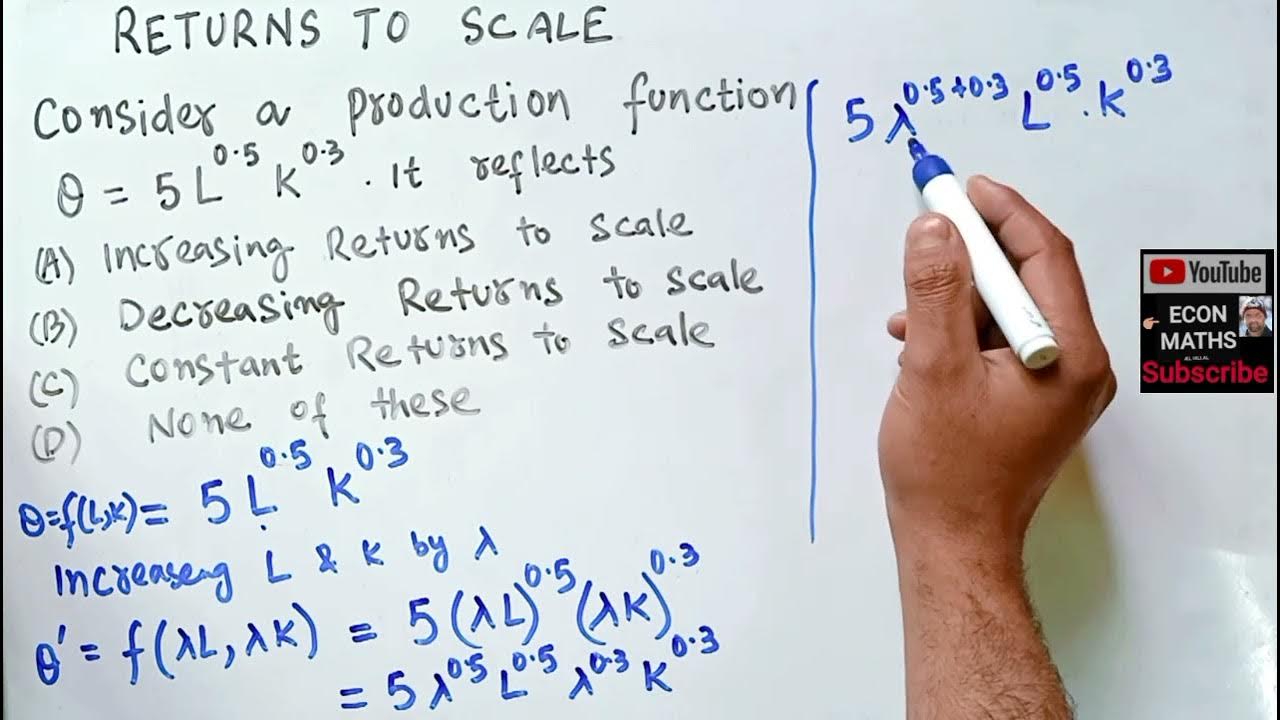 RETURNS TO SCALE
Consider a production function
Q = 5 L^0.5 K^0.3 . It reflects
(A) Increasing Returns to scale
(B) Decreasing Returns to scale
(C) Constant Returns to scale
(D) None of these
Q=f(L,K)= 5 L^0.5 K^0.3
Increaseng L & K by λ
Q' = f(λL, λK) = 5(λL)^0.5 (λK)^0.3
= 5 λ^0.5 L^0.5 λ^0.3 K^0.3
5 λ^0.5+0.3 L^0.5 . K^0.3
YouTube
ECON
MATHS
Subscribe